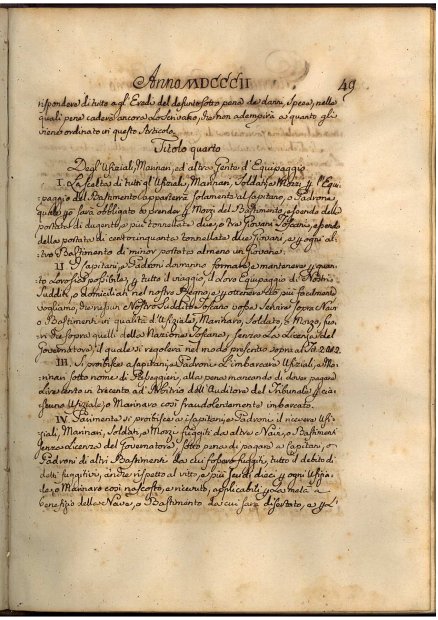 Anno MDCCCII 49
rispondere di tutto agl' Eredi del defunto sotto pena de danni, spese, nelle
quali pene caderà ancora lo Scrivano, che non adempirà a quanto gli
viene ordinato in questo Articolo.
Titolo quarto
Degl' Ufiziali, Marinari, ed altra Gente d' Equipaggio
I. La scelta di tutti gl' Ufiziali, Marinari, Soldati, e Mozzi p l' Equi-
paggio del Bastimento apparterrà solamente al Capitano, o Padrone
quale p sarà obbligato a prender p Mozzi del Bastimento, essendo della
portata di dugento, e più tonnellate due, o tre Giovani Toscani, essendo
della portata di cento cinquanta tonnellate due Giovani, e p ogni al-
tro Bastimento di minor portata almeno un Giovane.
II. I Capitani, e Padroni dovranno formare, e mantenere p quan-
to loro sia possibile, p tutto il viaggio, il loro Equipaggio di Nostri
Sudditi, o domiciliati nel nostro Regno, e p ottenere ciò più facilmente
vogliamo, che nessun Nostro Suddito Toscano possa Servire sopra Navi
o Bastimenti in qualità d' Ufiziale, Marinaro, Soldato, o Mozzo, fuo-
ri che sopra quelli della Nazione Toscana, senza la Licenza del
Governatore, il quale si regolerà nel modo prescritto sopra al
III. Si proibisce a Capitani, e Padroni l' imbarcare Ufiziali, e Ma-
rinari sotto nome di Passeggieri, alla pena mancando di dover pagare
Lire cento in trecento ad Arbitrio dell' Auditore del Tribunale p cia-
scuno Ufiziale, o Marinaro così fraudolentemente imbarcato.
IV. Parimente si proibisce a Capitani, e Padroni il ricevere Ufi-
ziali, Marinari, Soldati, e Mozzi fuggiti da altre Navi, o Bastimenti
senza licenza del Governatore, sotto pena di pagare a Capitani, o
Padroni di altri Bastimenti da cui fossero fuggiti, tutto il debito di
detti fuggitivi, anche rispetto al vitto, e più Scudi dieci p ogni Ufizia-
le, o Marinaro così nascosto, e ricevuto, applicabili p la metà a
benefizio della Nave, o Bastimento da cui sarà disertato, e p l'